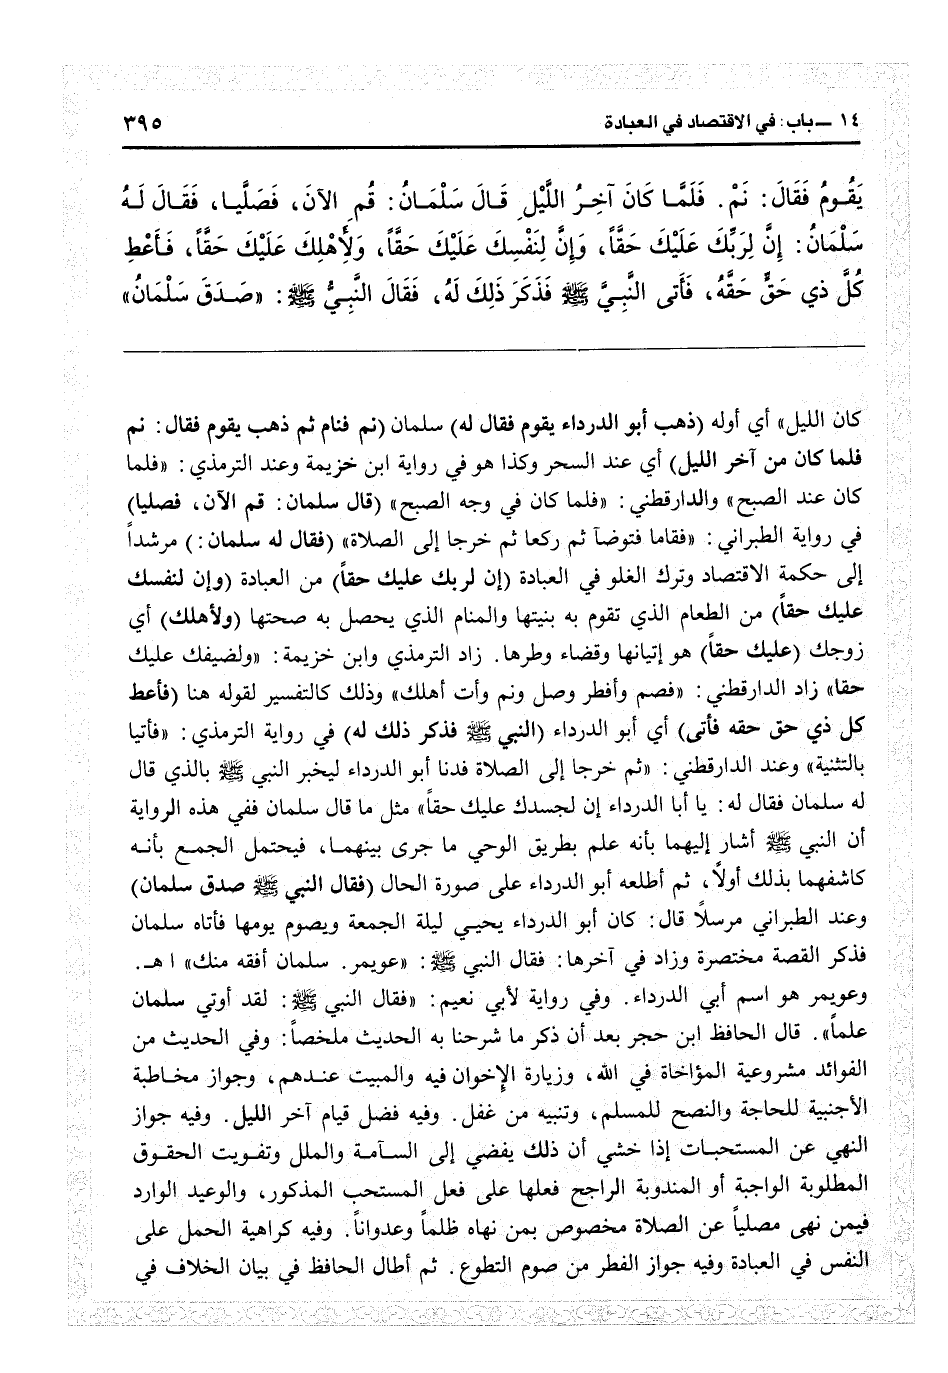 ١٤ ــ باب: في الاقتصاد في العبادة
٣٩٥
يَقُومُ فَقَالَ: نَمْ. فَلَمَّا كَانَ آخِرُ اللَّيْلِ قَالَ سَلْمَانُ: قُمِ الآنَ، فَصَلَّيا، فَقَالَ لَهُ
سَلْمَانُ: إِنَّ لِرَبِّكَ عَلَيْكَ حَقًّا، وَإِنَّ لِنَفْسِكَ عَلَيْكَ حَقًّا، وَلأَهْلِكَ عَلَيْكَ حَقًّا، فَأَعْطِ
كُلَّ ذي حَقٍّ حَقَّهُ، فَأَتى النَّبِيَّ ﷺ فَذَكَرَ ذَلِكَ لَهُ، فَقَالَ النَّبِيُّ ﷺ: «صَدَقَ سَلْمَانُ»
كان الليل» أي أوله (ذهب أبو الدرداء يقوم فقال له) سلمان (نم فنام ثم ذهب يقوم فقال: نم
فلما كان من آخر الليل) أي عند السحر وكذا هو في رواية ابن خزيمة وعند الترمذي: «فلما
كان عند الصبح» والدارقطني: «فلما كان في وجه الصبح» (قال سلمان: قم الآن، فصليا)
في رواية الطبراني: «فقاما فتوضآ ثم ركعا ثم خرجا إلى الصلاة» (فقال له سلمان:) مرشداً
إلى حكمة الاقتصاد وترك الغلو في العبادة (إن لربك عليك حقاً) من العبادة (وإن لنفسك
عليك حقاً) من الطعام الذي تقوم به بنيتها والمنام الذي يحصل به صحتها (ولأهلك) أي
زوجك (عليك حقاً) هو إتيانها وقضاء وطرها. زاد الترمذي وابن خزيمة: «ولضيفك عليك
حقا» زاد الدارقطني: «فصم وأفطر وصل ونم وأت أهلك» وذلك كالتفسير لقوله هنا (فأعط
كل ذي حق حقه فأتى) أي أبو الدرداء (النبي ﷺ فذكر ذلك له) في رواية الترمذي: «فأتيا
بالتثنية» وعند الدارقطني: «ثم خرجا إلى الصلاة فدنا أبو الدرداء ليخبر النبي ﷺ بالذي قال
له سلمان فقال له: يا أبا الدرداء إن لجسدك عليك حقاً» مثل ما قال سلمان ففي هذه الرواية
أن النبي ﷺ أشار إليهما بأنه علم بطريق الوحي ما جرى بينهما، فيحتمل الجمع بأنه
كاشفهما بذلك أولاً، ثم أطلعه أبو الدرداء على صورة الحال (فقال النبي ﷺ صدق سلمان)
وعند الطبراني مرسلاً قال: كان أبو الدرداء يحيي ليلة الجمعة ويصوم يومها فأتاه سلمان
فذكر القصة مختصرة وزاد في آخرها: فقال النبي ﷺ: «عويمر. سلمان أفقه منك» ا هـ.
وعويمر هو اسم أبي الدرداء. وفي رواية لأبي نعيم: «فقال النبي ﷺ: لقد أوتي سلمان
علماً». قال الحافظ ابن حجر بعد أن ذكر ما شرحنا به الحديث ملخصاً: وفي الحديث من
الفوائد مشروعية المؤاخاة في الله، وزيارة الإخوان فيه والمبيت عندهم، وجواز مخاطبة
الأجنبية للحاجة والنصح للمسلم، وتنبيه من غفل. وفيه فضل قيام آخر الليل. وفيه جواز
النهي عن المستحبات إذا خشي أن ذلك يفضي إلى السآمة والملل وتفويت الحقوق
المطلوبة الواجبة أو المندوبة الراجح فعلها على فعل المستحب المذكور، والوعيد الوارد
فيمن نهى مصلياً عن الصلاة مخصوص بمن نهاه ظلماً وعدواناً. وفيه كراهية الحمل على
النفس في العبادة وفيه جواز الفطر من صوم التطوع. ثم أطال الحافظ في بيان الخلاف في